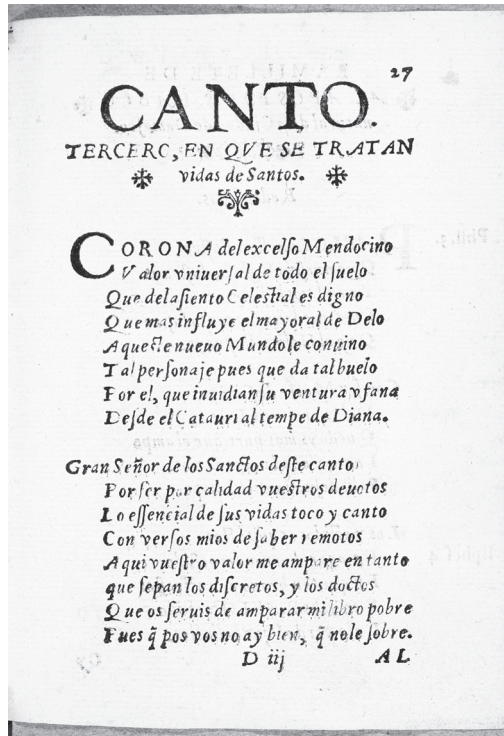 27
CANTO.
TERCERO, EN QVE SE TRATAN
vidas de Santos.
CORONA del excelſo Mendocino
Valor vniuerſal de todo el ſuelo
Que del aſiento Celestial es digno
Que mas influye el mayoral de Delo
A queste nueuo Mundo le conuino
Tal perſonaje pues que da tal buelo
Por el, que inuidian ſu ventura vfana
Deſde el Catauri al tempe de Diana.
Gran Señor de los Sanctos deſte canto
Por ſer por calidad vuestros deuotos
Lo eſſencial de ſus vidas toco y canto
Con verſos mios de ſaber remotos
Aqui vuestro valor me ampare en tanto
que ſepan los diſcretos, y los doctos
Que os ſeruis de amparar mi libro pobre
Pues q̃ pos vos no ay bien, q̃ no le ſobre.
D iij AL
Phil. 3.